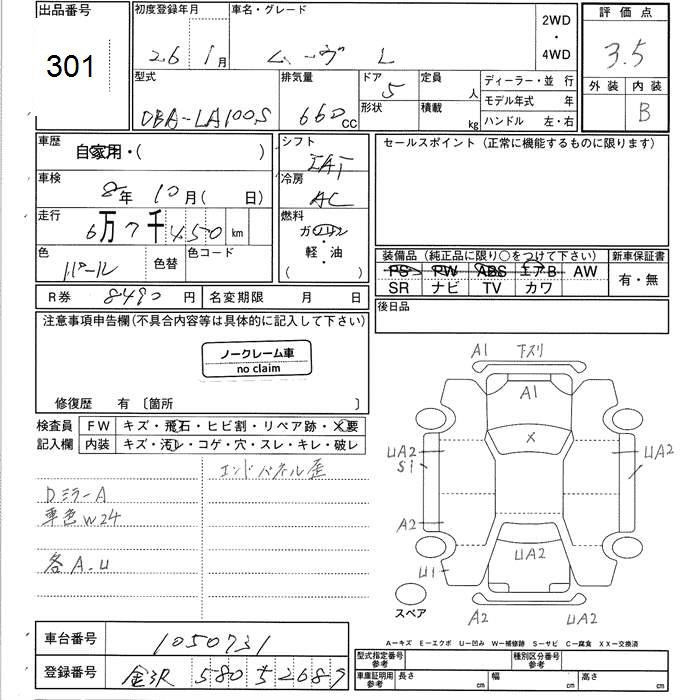 出品番号 初度登録年月 車名・グレード 2WD・4WD 評価点
301 26 1月 ムーヴ L 3.5
型式 排気量 ドア 5 定員 人 ディーラー・並 行 外装 内装
DBA-LA100S 660cc 形状 積載 kg モデル年式 年 B
ハンドル 左・右
車歴 自家用・( ) シフト IAT セールスポイント (正常に機能するものに限ります)
車検 8年 10月( 日) 冷房 AC
走行 6万7千450km 燃料 ガソリン
軽・油
( )
色 パール 色替 色コード
装備品 (純正品に限り○をつけて下さい) 新車保証書
PS PW ABS エアB AW 有・無
SR ナビ TV カワ
R券 8490円 名変期限 月 日 後日品
注意事項申告欄(不具合内容等は具体的に記入して下さい)
ノークレーム車
no claim
修復歴 有 〔箇所 〕
検査員 FW キズ・飛石・ヒビ割・リペア跡・X要
記入欄 内装 キズ・汚レ・コゲ・穴・スレ・キレ・破レ
エンドパネル歪
DミラーA
車色W24
各A.U
A1 下スリ
A1
X
UA2 UA2
S1
A2
UA2
U1
スペア
A2 UA2
A-キズ E-エクボ U-凹み W-補修跡 S-サビ C-腐食 XX-交換済
車台番号 1050731
型式指定番号 参考 種別区分番号 参考
登録番号 金沢 580 ち 2689
車庫証明用 参考 長さ cm 幅 cm 高さ cm